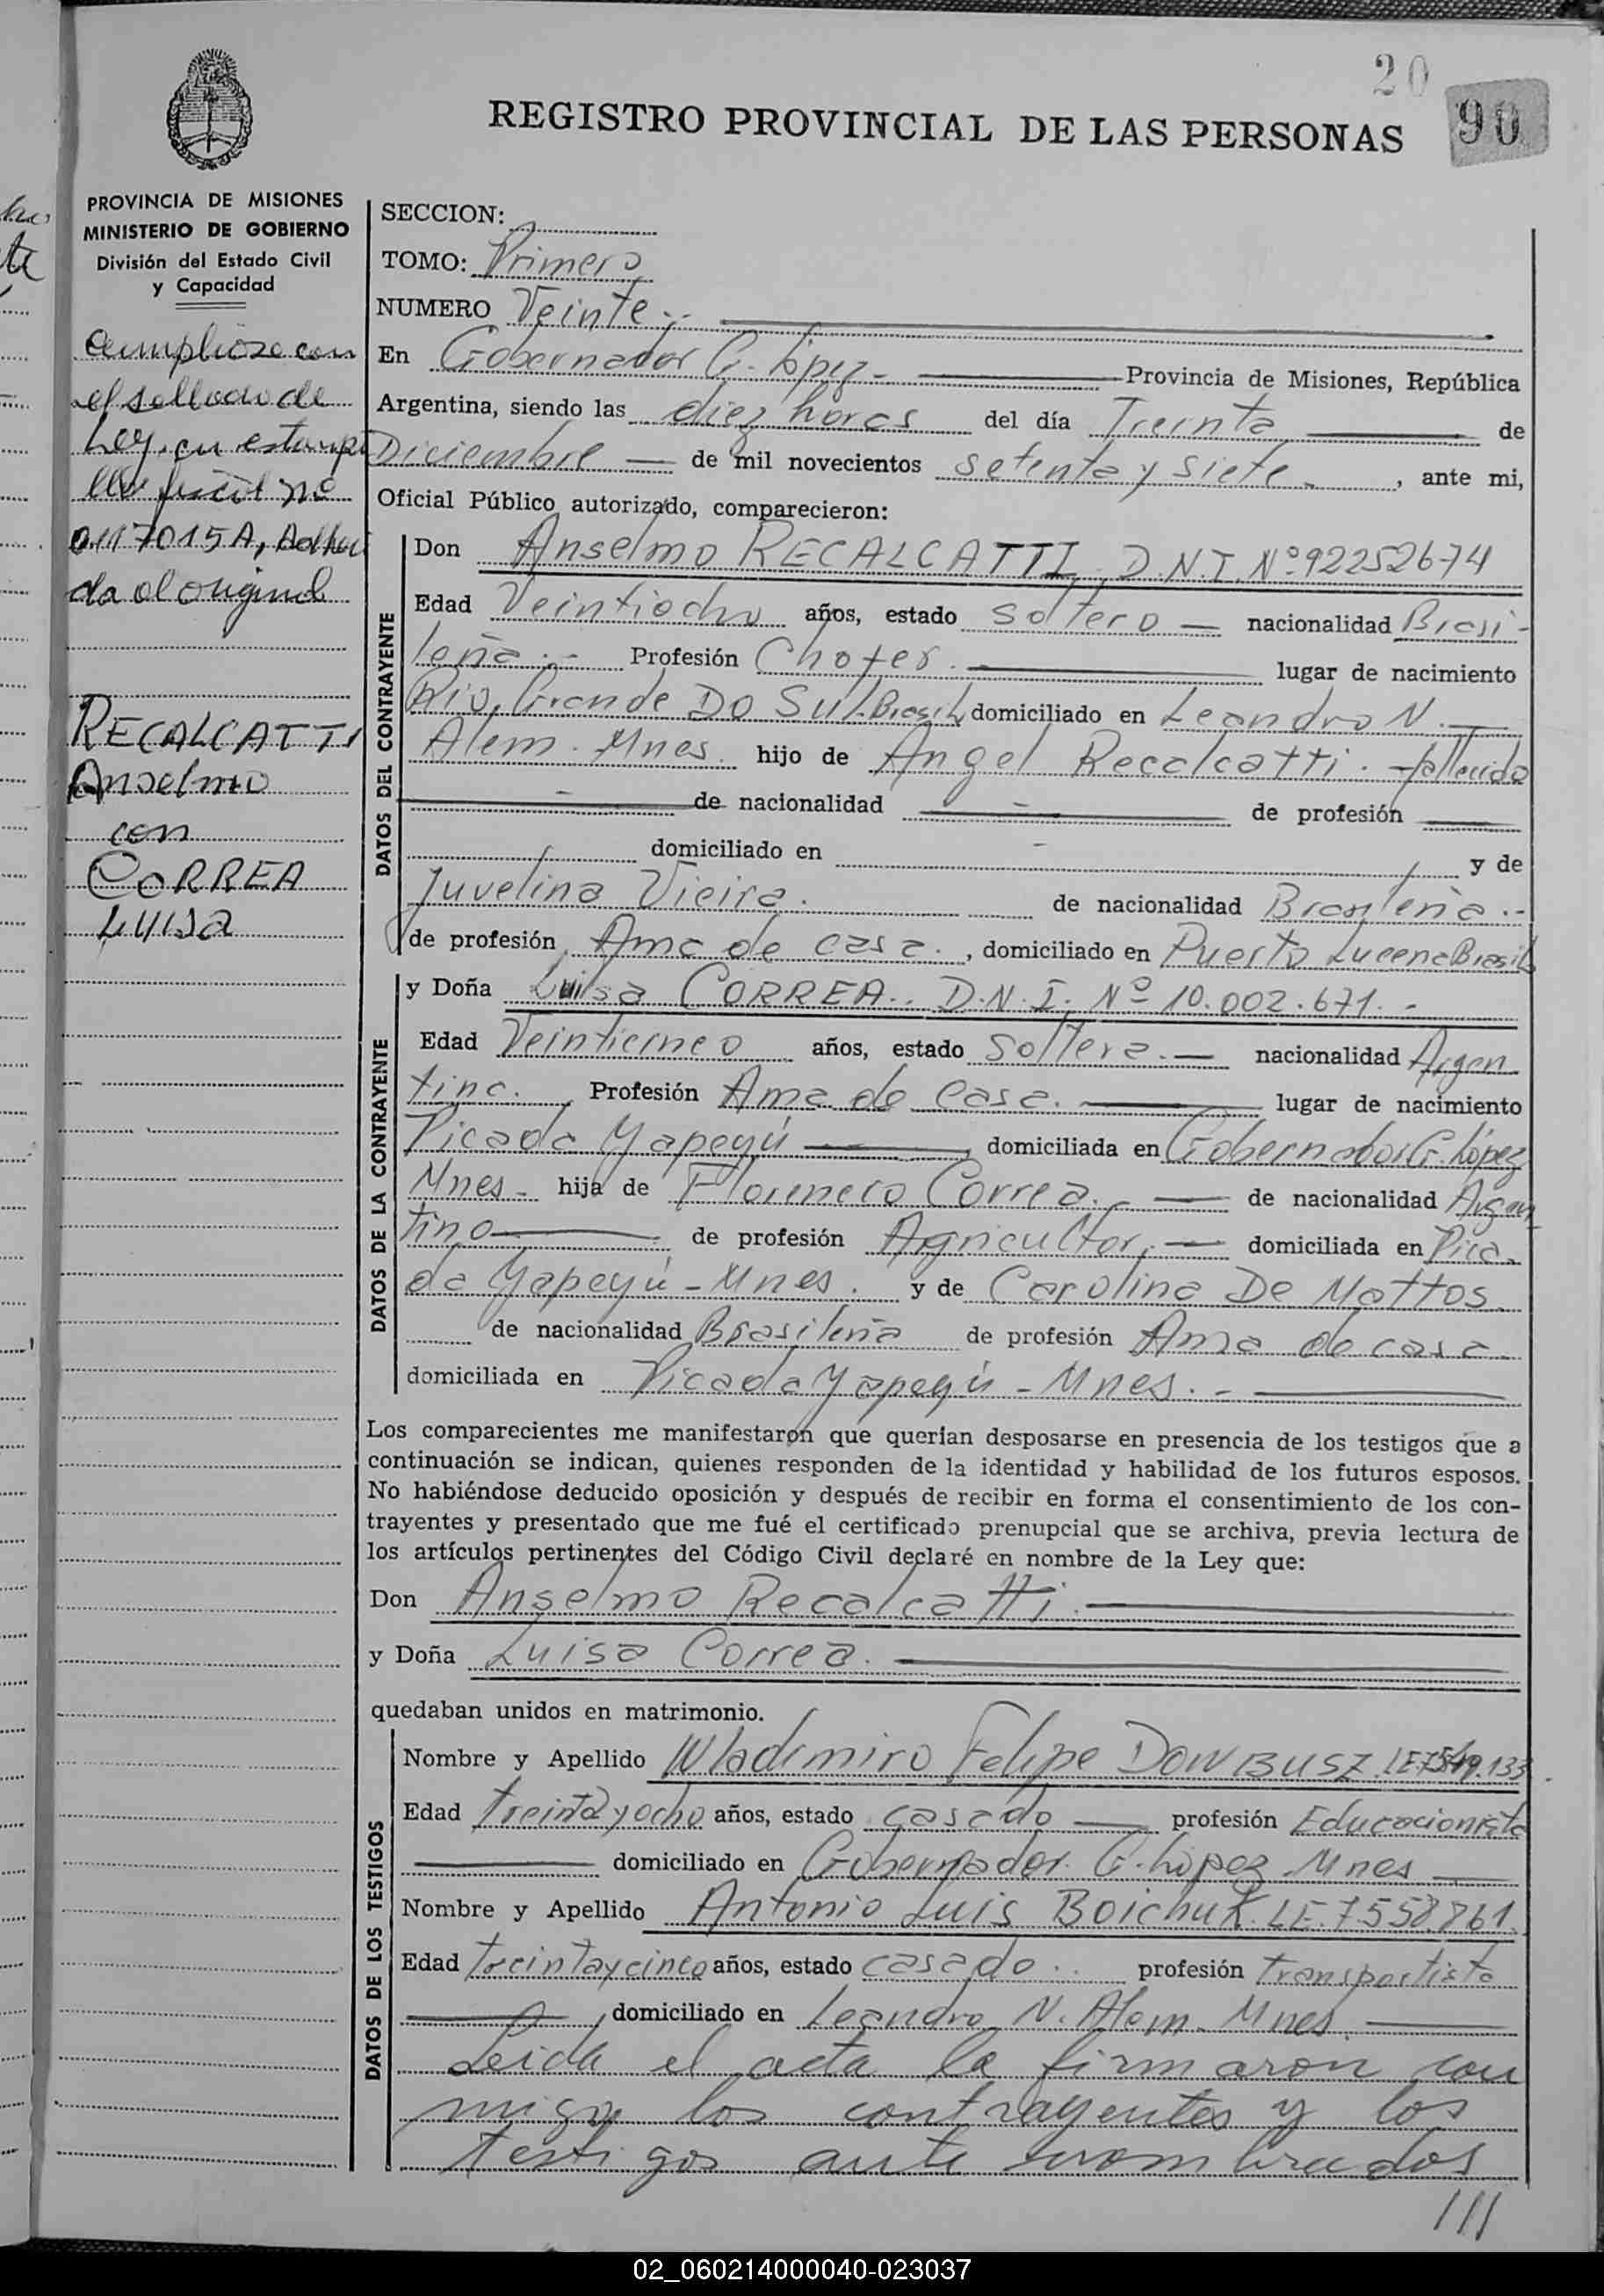 20
90
REGISTRO PROVINCIAL DE LAS PERSONAS
PROVINCIA DE MISIONES
MINISTERIO DE GOBIERNO
División del Estado Civil
y Capacidad
Cumplióse con
el sellado de
Ley, en estampi
lla fiscal No
0117015A, Adheri
da al original
RECALCATTI
Anselmo
con
CORREA
Luisa
SECCION:
TOMO: Primero
NUMERO Veinte.-
En Gobernador G. López- Provincia de Misiones, República
Argentina, siendo las diez horas del día Treinta de
Diciembre — de mil novecientos setenta y siete-, ante mi,
Oficial Público autorizado, comparecieron:
DATOS DEL CONTRAYENTE
Don Anselmo RECALCATTI, D.N.I. Nº 92252674
Edad Veintiocho años, estado soltero — nacionalidad Brasi-
leña.- Profesión Chofer. lugar de nacimiento
Rio Grande DO Sul-Brasil, domiciliado en Leandro N.
Alem. Mnes. hijo de Angel Recalcatti. fallecido
de nacionalidad — de profesión —
domiciliado en - y de
Juvelina Vieira. de nacionalidad Brasileña.-
de profesión Ama de casa., domiciliado en Puerto Lucena Brasil
DATOS DE LA CONTRAYENTE
y Doña Luisa CORREA.. D.N.I. Nº 10.002.671.-
Edad Veinticinco años, estado Soltera.— nacionalidad Argen
tina. Profesión Ama de Casa. lugar de nacimiento
Picada Yapeyú — domiciliada en Gobernador G. López
Mnes- hija de Correa.- — de nacionalidad Argen
tino — de profesión Agricultor, — domiciliada en Pica-
da Yapeyú-Mnes. y de Carolina De Mattos
de nacionalidad Brasileña de profesión Ama de casa
domiciliada en Picada Yapeyú-Mnes.-
Los comparecientes me manifestaron que querían desposarse en presencia de los testigos que a
continuación se indican, quienes responden de la identidad y habilidad de los futuros esposos.
No habiéndose deducido oposición y después de recibir en forma el consentimiento de los con-
trayentes y presentado que me fué el certificado prenupcial que se archiva, previa lectura de
los artículos pertinentes del Código Civil declaré en nombre de la Ley que:
Don Anselmo Recalcatti.
y Doña Luisa Correa.
quedaban unidos en matrimonio.
DATOS DE LOS TESTIGOS
Nombre y Apellido Wladimiro Felipe DOWBUSZ LE.
Edad treinta y ocho años, estado casado — profesión Educacionista
domiciliado en Gobernador. G. López Mnes
Nombre y Apellido Antonio Luis Boichuk. LE. 7.558.861.
Edad treinta y cinco años, estado casado.. profesión transportista
domiciliado en Leandro N. Alem- Mnes.
Leida el acta la firmaron con
migo los contrayentes y los
testigos ante nombrados
///
02_060214000040-023037